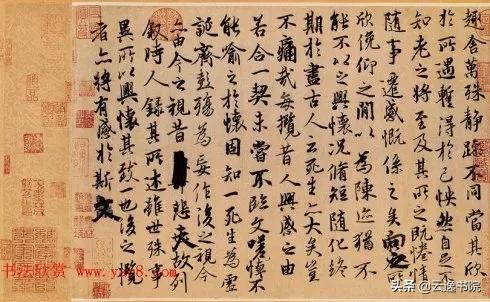 趣舍萬殊静躁不同當其欣
於所遇暫得於己怏然自足不
知老之將至及其所之既惓情
隨事遷感慨係之矣向之所
欣俛仰之閒以為陳迹猶不
能不以之興懷況脩短隨化終
期於盡古人云死生亦大矣豈
不痛哉每攬昔人興感之由
若合一契未嘗不臨文嗟悼不
能喻之於懷固知一死生為虛
誕齊彭殤為妄作後之視今
亦由今之視昔悲夫故列
叙時人錄其所述雖世殊事
異所以興懷其致一也後之攬
者亦將有感於斯文
书法欣赏 www.yac8.com
头条 @云逸书院